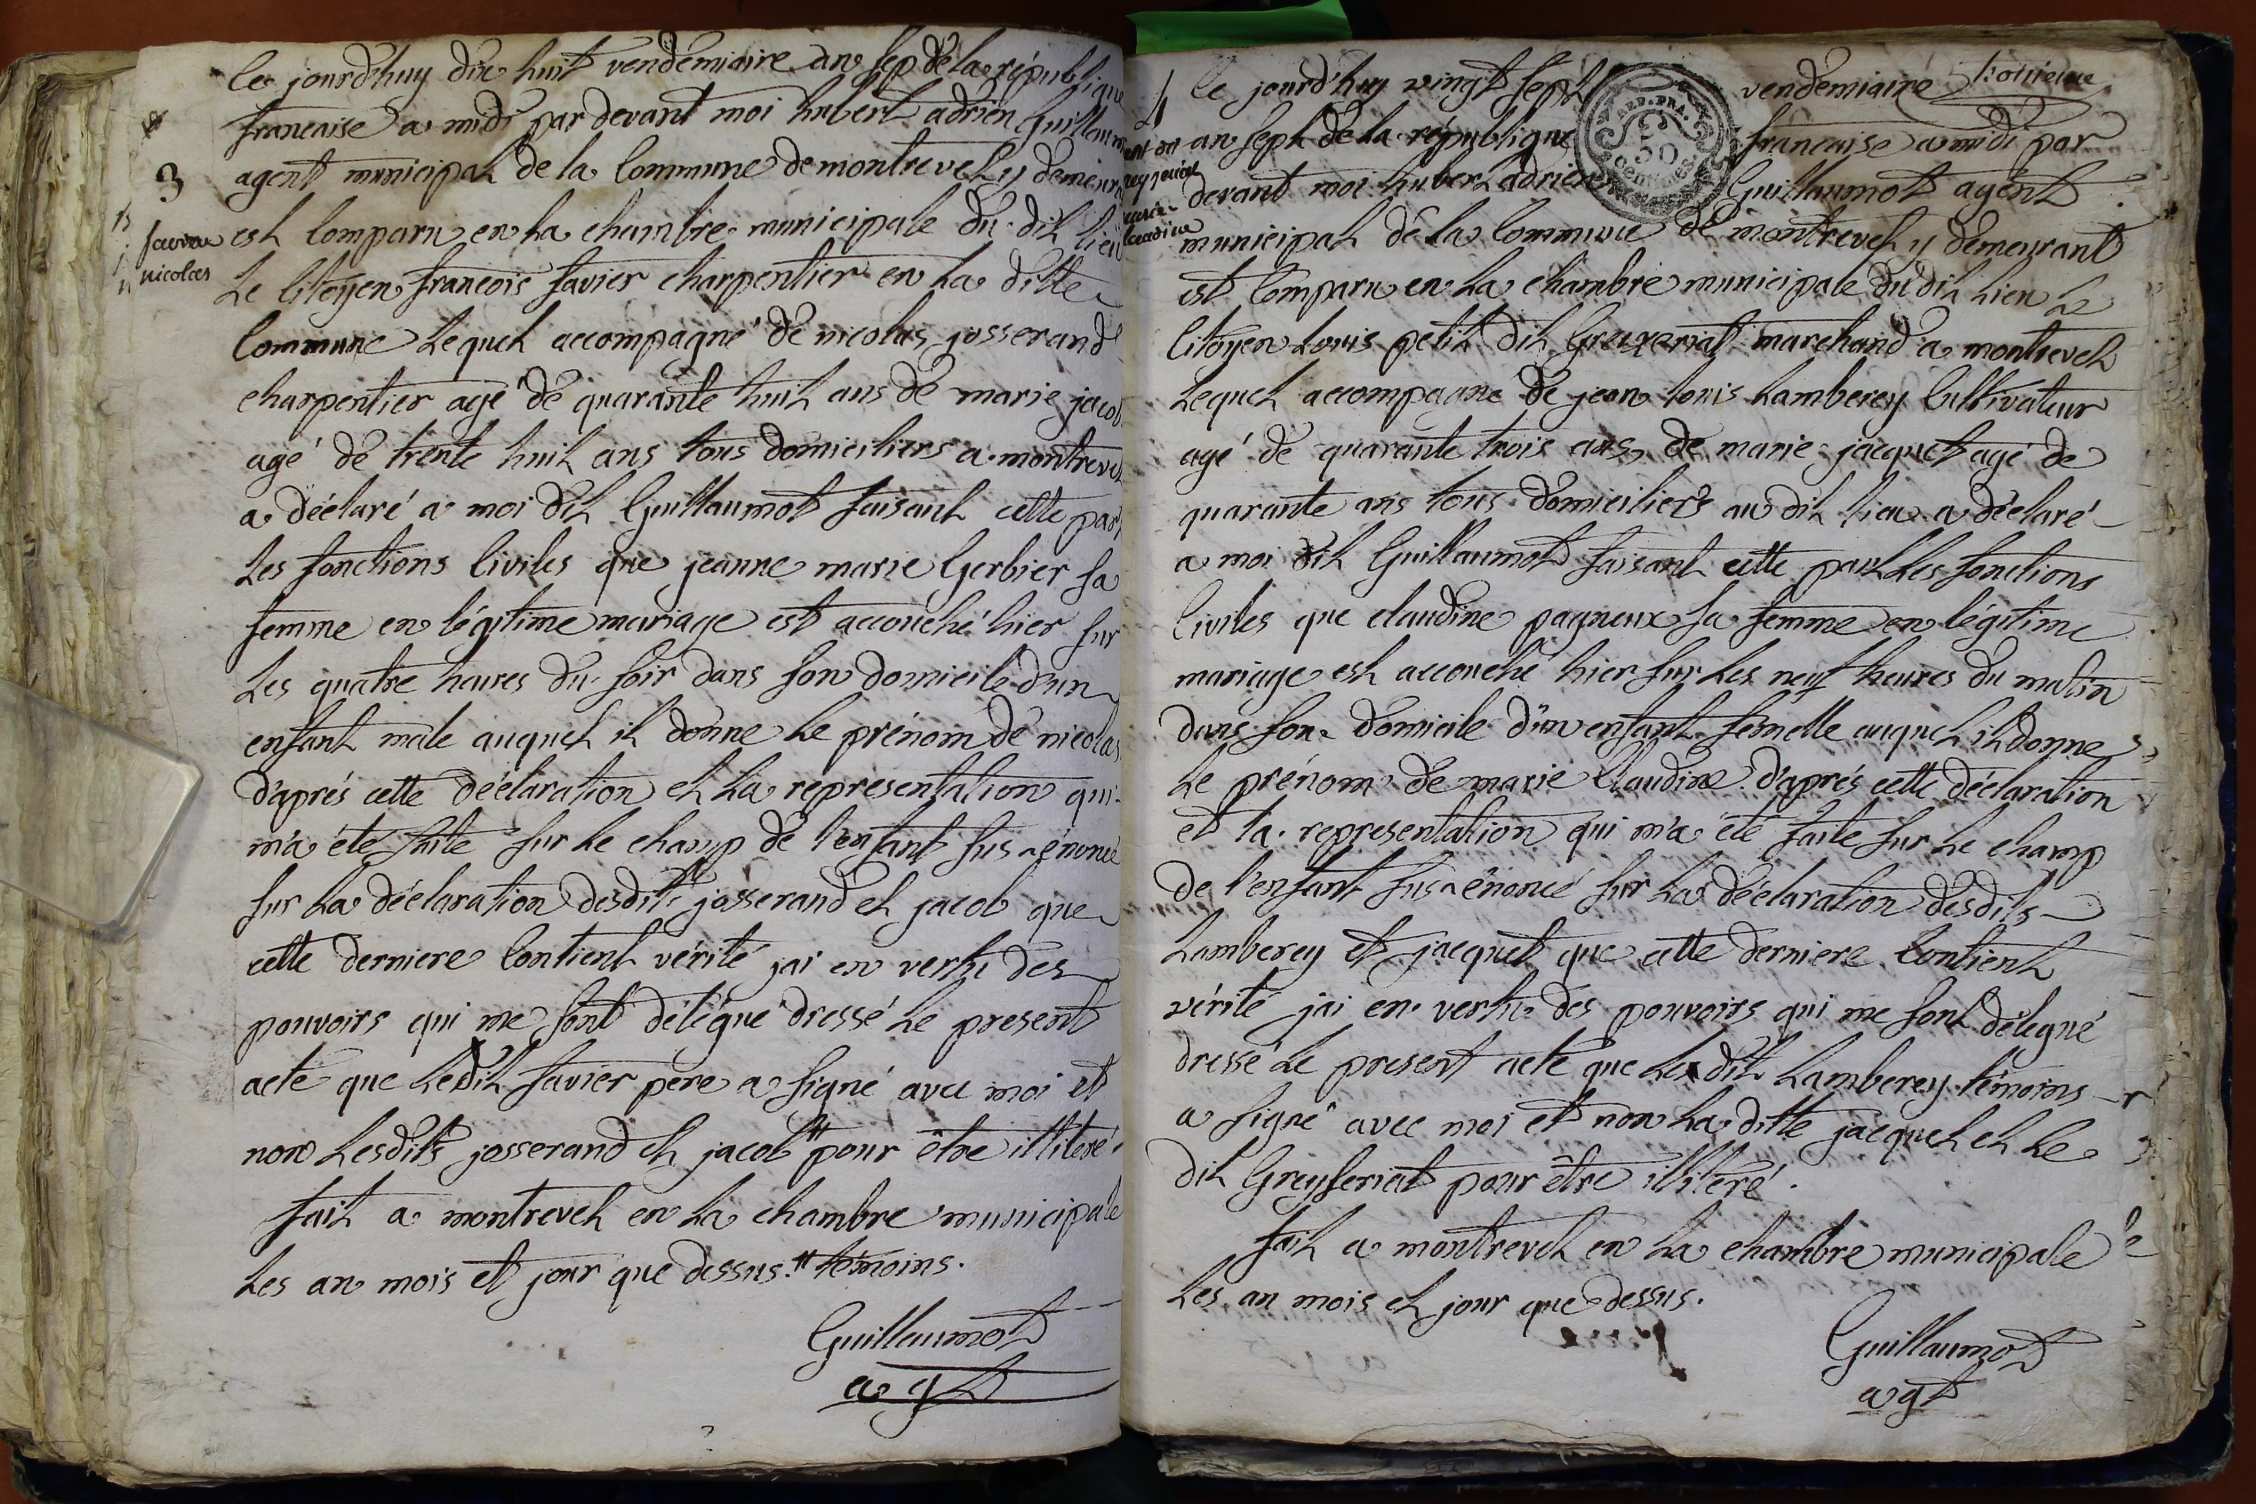 3
favier
nicolas
le jourd'huy dix huit vendémiaire an sep de la république
francaise a midi par devant moi hubert adrien Guillaumot
agent municipal de la Commune de montrevel y demeurant
est Comparu en la chambre municipale du dit lieu
Le Citoyen francois favier charpentier en la ditte
Commune Lequel accompagné de nicolas josserand
charpentier agé de quarante huit ans de marie jacob
agé de trente huit ans tous domiciliers a montrevel
a déclaré a moi dit Guillaumot faisant cette part
Les fonctions Civiles que jeanne marie Gerbier sa
femme en légitime mariage est accouché hier sur
Les quatre heures du soir dans son domicile d'un
enfant mâle auquel il donne le prénom de nicolas
d'aprés cette déclaration et la representation qui
m'a été faite sur le champ de l'enfant sus-énoncé
sur la déclaration desdits josserand et jacob que
cette derniere Contient vérité jai en vertu des
pouvoirs qui me sont délégué dressé le present
acte que Ledit favier pere a signé avec moi et
non Lesdits josserand et jacob # pour être illiteré.
fait a montrevel en la chambre municipale
Les an mois et jour que dessus. # témoins.
Guillaumot
agt
4
marie
claudine
REP. FRA.
50
centimes
le jourd'huy vingt sept vendémiaire
an sept de la république francaise a midi par
devant moi hubert adrien Guillaumot agent
municipal de la Commune de montrevel y demeurant
est Comparu en la chambre municipale du dit lieu Le
Citoyen Louis petit dit Greyzeriat marchand a montrevel
Lequel accompagne de jean Louis Lamberey Cultivateur
agé de quarante trois ans, de marie jacquet agé de
quarante ans tous domiciliers au dit lieu a déclaré
a moi dit Guillaumot faisant cette part Les fonctions
Civiles que claudine pagneux sa femme en légitime
mariage est accouché hier sur Les neuf heures du matin
dans son domicile d'un enfant femelle auquel il donne
Le prénom de marie Claudine d'aprés cette déclaration
et la representation qui m'a été faite sur le champ
de l'enfant sus-énoncé sur la déclaration desdits
Lamberey et jacquet que cette derniere Contient
vérité jai en vertu des pouvoirs qui me sont délegué
dressé Le present acte que Le dit Lamberey témoins
a signé avec moi et non la ditte jacquet et le
dit Greyseriat pour être illiteré.
fait a montrevel en la chambre municipale
Les an mois et jour que dessus.
Guillaumot
agt